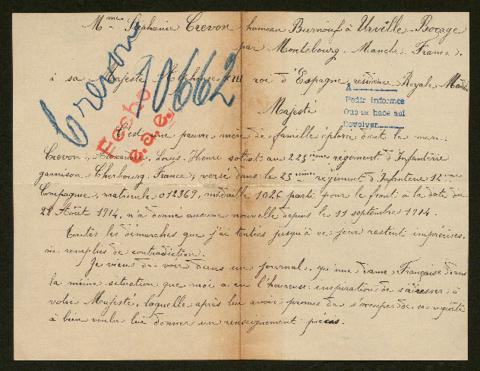 Mme Stéphanie Crevon hameau Burnouf à Urville Bocage
par Montebourg. Manche. France.
à sa Majesté Alphonse XIII roi d'Espagne, résidence Royale, Madrid
Crevon
10662
Fecho
e.a.e.
Pedir informes
Que se hace así
Devolver
Majesté
C'est une pauvre mère de famille éplorée dont le mari
Crevon, Alexandre, Louis, Henri soldat au 225ième régiment d'Infanterie
garnison Cherbourg. France, versé dans le 25ième régiment d'Infanterie 12ième
Compagnie, matricule 012369, médaille 1026 parti pour le front à la date du
22 Août 1914, n'a donné aucune nouvelle depuis le 11 septembre 1914.
Toutes les démarches que j'ai tentées jusqu'à ce jour restent imprécises
remplies de contradiction.
Je viens de voir dans un journal, qu'une dame Française dans
la même situation que moi a eu l'heureuse inspiration de s'adresser à
votre Majesté, laquelle après lui avoir promis de s'occuper de sa requête
a bien voulu lui donner un renseignement précis.